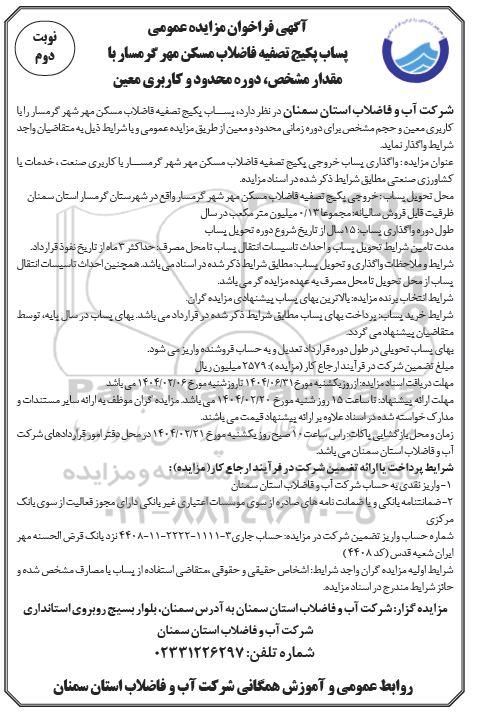 آگهی فراخوان مزایده عمومی
نوبت
دوم
پساب پکیج تصفیه فاضلاب مسکن مهر گرمسار با
مقدار مشخص، دوره محدود و کاربری معین
شرکت آب و فاضلاب استان سمنان در نظر دارد، پساب پکیج تصفیه فاضلاب مسکن مهر شهر گرمسار را با
کاربری معین و حجم مشخص برای دوره زمانی محدود و معین از طریق مزایده عمومی و با شرایط ذیل به متقاضیان واجد
شرایط واگذار نماید.
عنوان مزایده : واگذاری پساب خروجی پکیج تصفیه فاضلاب مسکن مهر شهر گرمسار با کاربری صنعت ، خدمات یا
کشاورزی صنعتی مطابق شرایط ذکر شده در اسناد مزایده.
محل تحویل پساب : خروجی پکیج تصفیه فاضلاب مسکن مهر شهر گرمسار واقع در شهرستان گرمسار استان سمنان
ظرفیت قابل فروش سالیانه: مجموعا ۰/۱۳ میلیون متر مکعب در سال
طول دوره واگذاری پساب: ۱۵ سال از تاریخ شروع دوره تحویل پساب
مدت تامین شرایط تحویل پساب و احداث تاسیسات انتقال پساب تا محل مصرف: حداکثر ۳ ماه از تاریخ نفوذ قرارداد.
شرایط و ملاحظات واگذاری و تحویل پساب: مطابق شرایط ذکر شده در اسناد می باشد. همچنین احداث تاسیسات انتقال
پساب از محل تحویل تا محل مصرف به عهده مزایده گر می باشد.
شرایط انتخاب برنده مزایده: بالاترین بهای پساب پیشنهادی مزایده گران.
شرایط خرید پساب: پرداخت بهای پساب مطابق شرایط ذکر شده در قرارداد می باشد. بهای پساب در سال پایه، توسط
متقاضیان پیشنهاد می گردد.
بهای پساب تحویلی در طول دوره قرارداد تعدیل و به حساب فروشنده واریز می شود.
مبلغ تضمین شرکت در فرآیند ارجاع کار (مزایده): ۲۵۷۹ میلیون ریال
مهلت دریافت اسناد مزایده: از روز یکشنبه مورخ ۱۴۰۴/۰۶/۳۱ تا روز شنبه مورخ ۱۴۰۴/۰۲/۰۶ می باشد
مهلت ارائه پیشنهاد: تا ساعت ۱۵ روز شنبه مورخ ۱۴۰۴/۰۲/۲۰ می باشد. مزایده گران موظف به ارائه سایر مستندات و
مدارک خواسته شده در اسناد علاوه بر ارائه پیشنهاد قیمت می باشند.
زمان و محل بازگشایی پاکات: راس ساعت ۱۰ صبح روز یکشنبه مورخ ۱۴۰۴/۰۲/۲۱ در محل دفتر امور قراردادهای شرکت
آب و فاضلاب استان سمنان می باشد.
شرایط پرداخت یا ارائه تضمین شرکت در فرآیند ارجاع کار (مزایده) :
۱- واریز نقدی به حساب شرکت آب و فاضلاب استان سمنان
۲- ضمانتنامه بانکی و یا ضمانت نامه های صادره از سوی موسسات اعتباری غیر بانکی دارای مجوز فعالیت از سوی بانک
مرکزی
شماره حساب واریز تضمین شرکت در مزایده: حساب جاری ۳-۱۱۱۱-۲۲۲۲-۱۱-۴۴۰۸ نزد بانک قرض الحسنه مهر
ایران شعبه قدس (کد ۴۴۰۸)
شرایط اولیه مزایده گران واجد شرایط: اشخاص حقیقی و حقوقی ،متقاضی استفاده از پساب با مصارف مشخص شده و
حائز شرایط مندرج در اسناد مزایده.
مزایده گزار: شرکت آب و فاضلاب استان سمنان به آدرس سمنان، بلوار بسیج روبروی استانداری
شرکت آب و فاضلاب استان سمنان
شماره تلفن: ۰۲۳۳۱۲۲۶۲۹۷
روابط عمومی و آموزش همگانی شرکت آب و فاضلاب استان سمنان